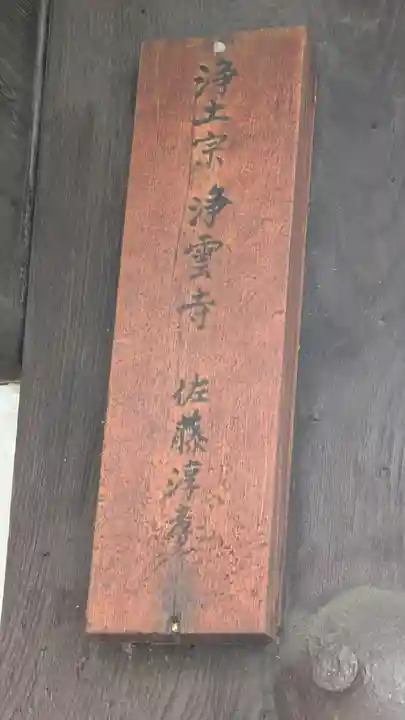 浄土宗 浄雲寺 佐藤淳孝